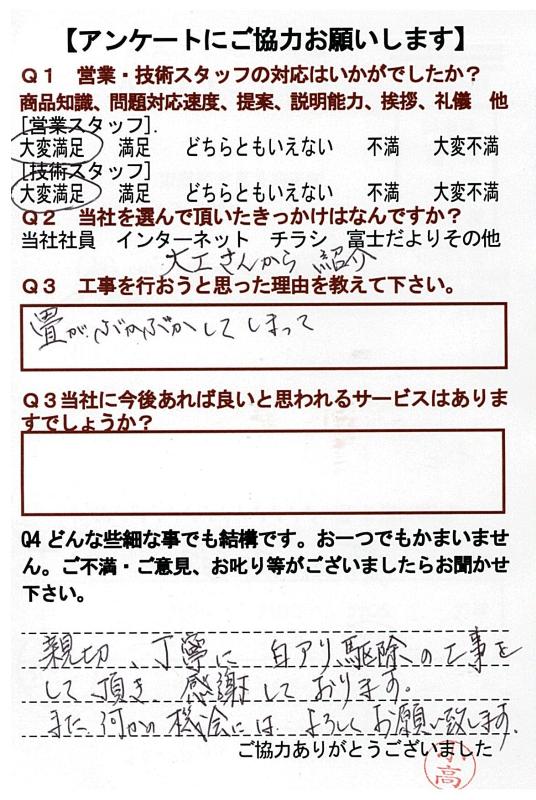 【アンケートにご協力お願いします】
Q1 営業・技術スタッフの対応はいかがでしたか？
商品知識、問題対応速度、提案、説明能力、挨拶、礼儀 他
[営業スタッフ].
大変満足 満足 どちらともいえない 不満 大変不満
[技術スタッフ]
大変満足 満足 どちらともいえない 不満 大変不満
Q2 当社を選んで頂いたきっかけはなんですか？
当社社員 インターネット チラシ 富士だよりその他
大工さんから 紹介
Q3 工事を行おうと思った理由を教えて下さい。
畳がぶかぶかしてしまって
Q3当社に今後あれば良いと思われるサービスはありま
すでしょうか？
Q4 どんな些細な事でも結構です。お一つでもかまいませ
ん。ご不満・ご意見、お叱り等がございましたらお聞かせ
下さい。
親切、丁寧に 白アリ駆除の工事を
して頂き 感謝しております。
また何かの機会には よろしくお願い致します。
ご協力ありがとうございました
高